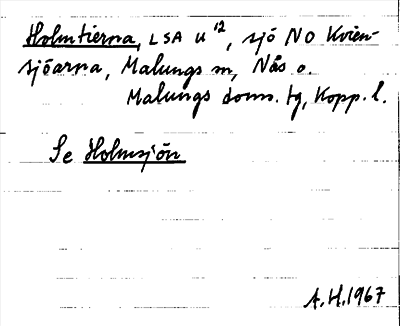 Holmtierna, LSA U¹², sjö NO Kvien-
sjöarna, Malungs m, Nås o.
Malungs doms. tg, Kopp. l.
Se Holmsjön
A.H. 1967